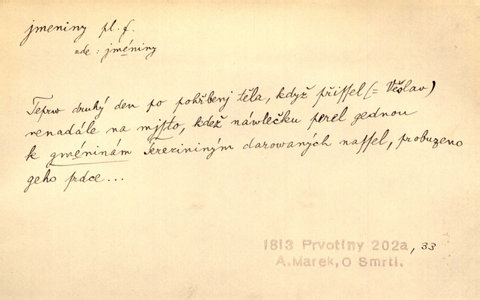 jmeniny pl. f.
ode: jméniny
Teprw druhý den po pohřbenj těla, když přissel (= Věslav)
nenadále na mjsto, kdež náwlečku perel gednou
k gméninám Serezininým darowaných nassel, probuzeno
geho srdce...
1813 Prvotiny 202a, 33
A. Marek, O Smrti.